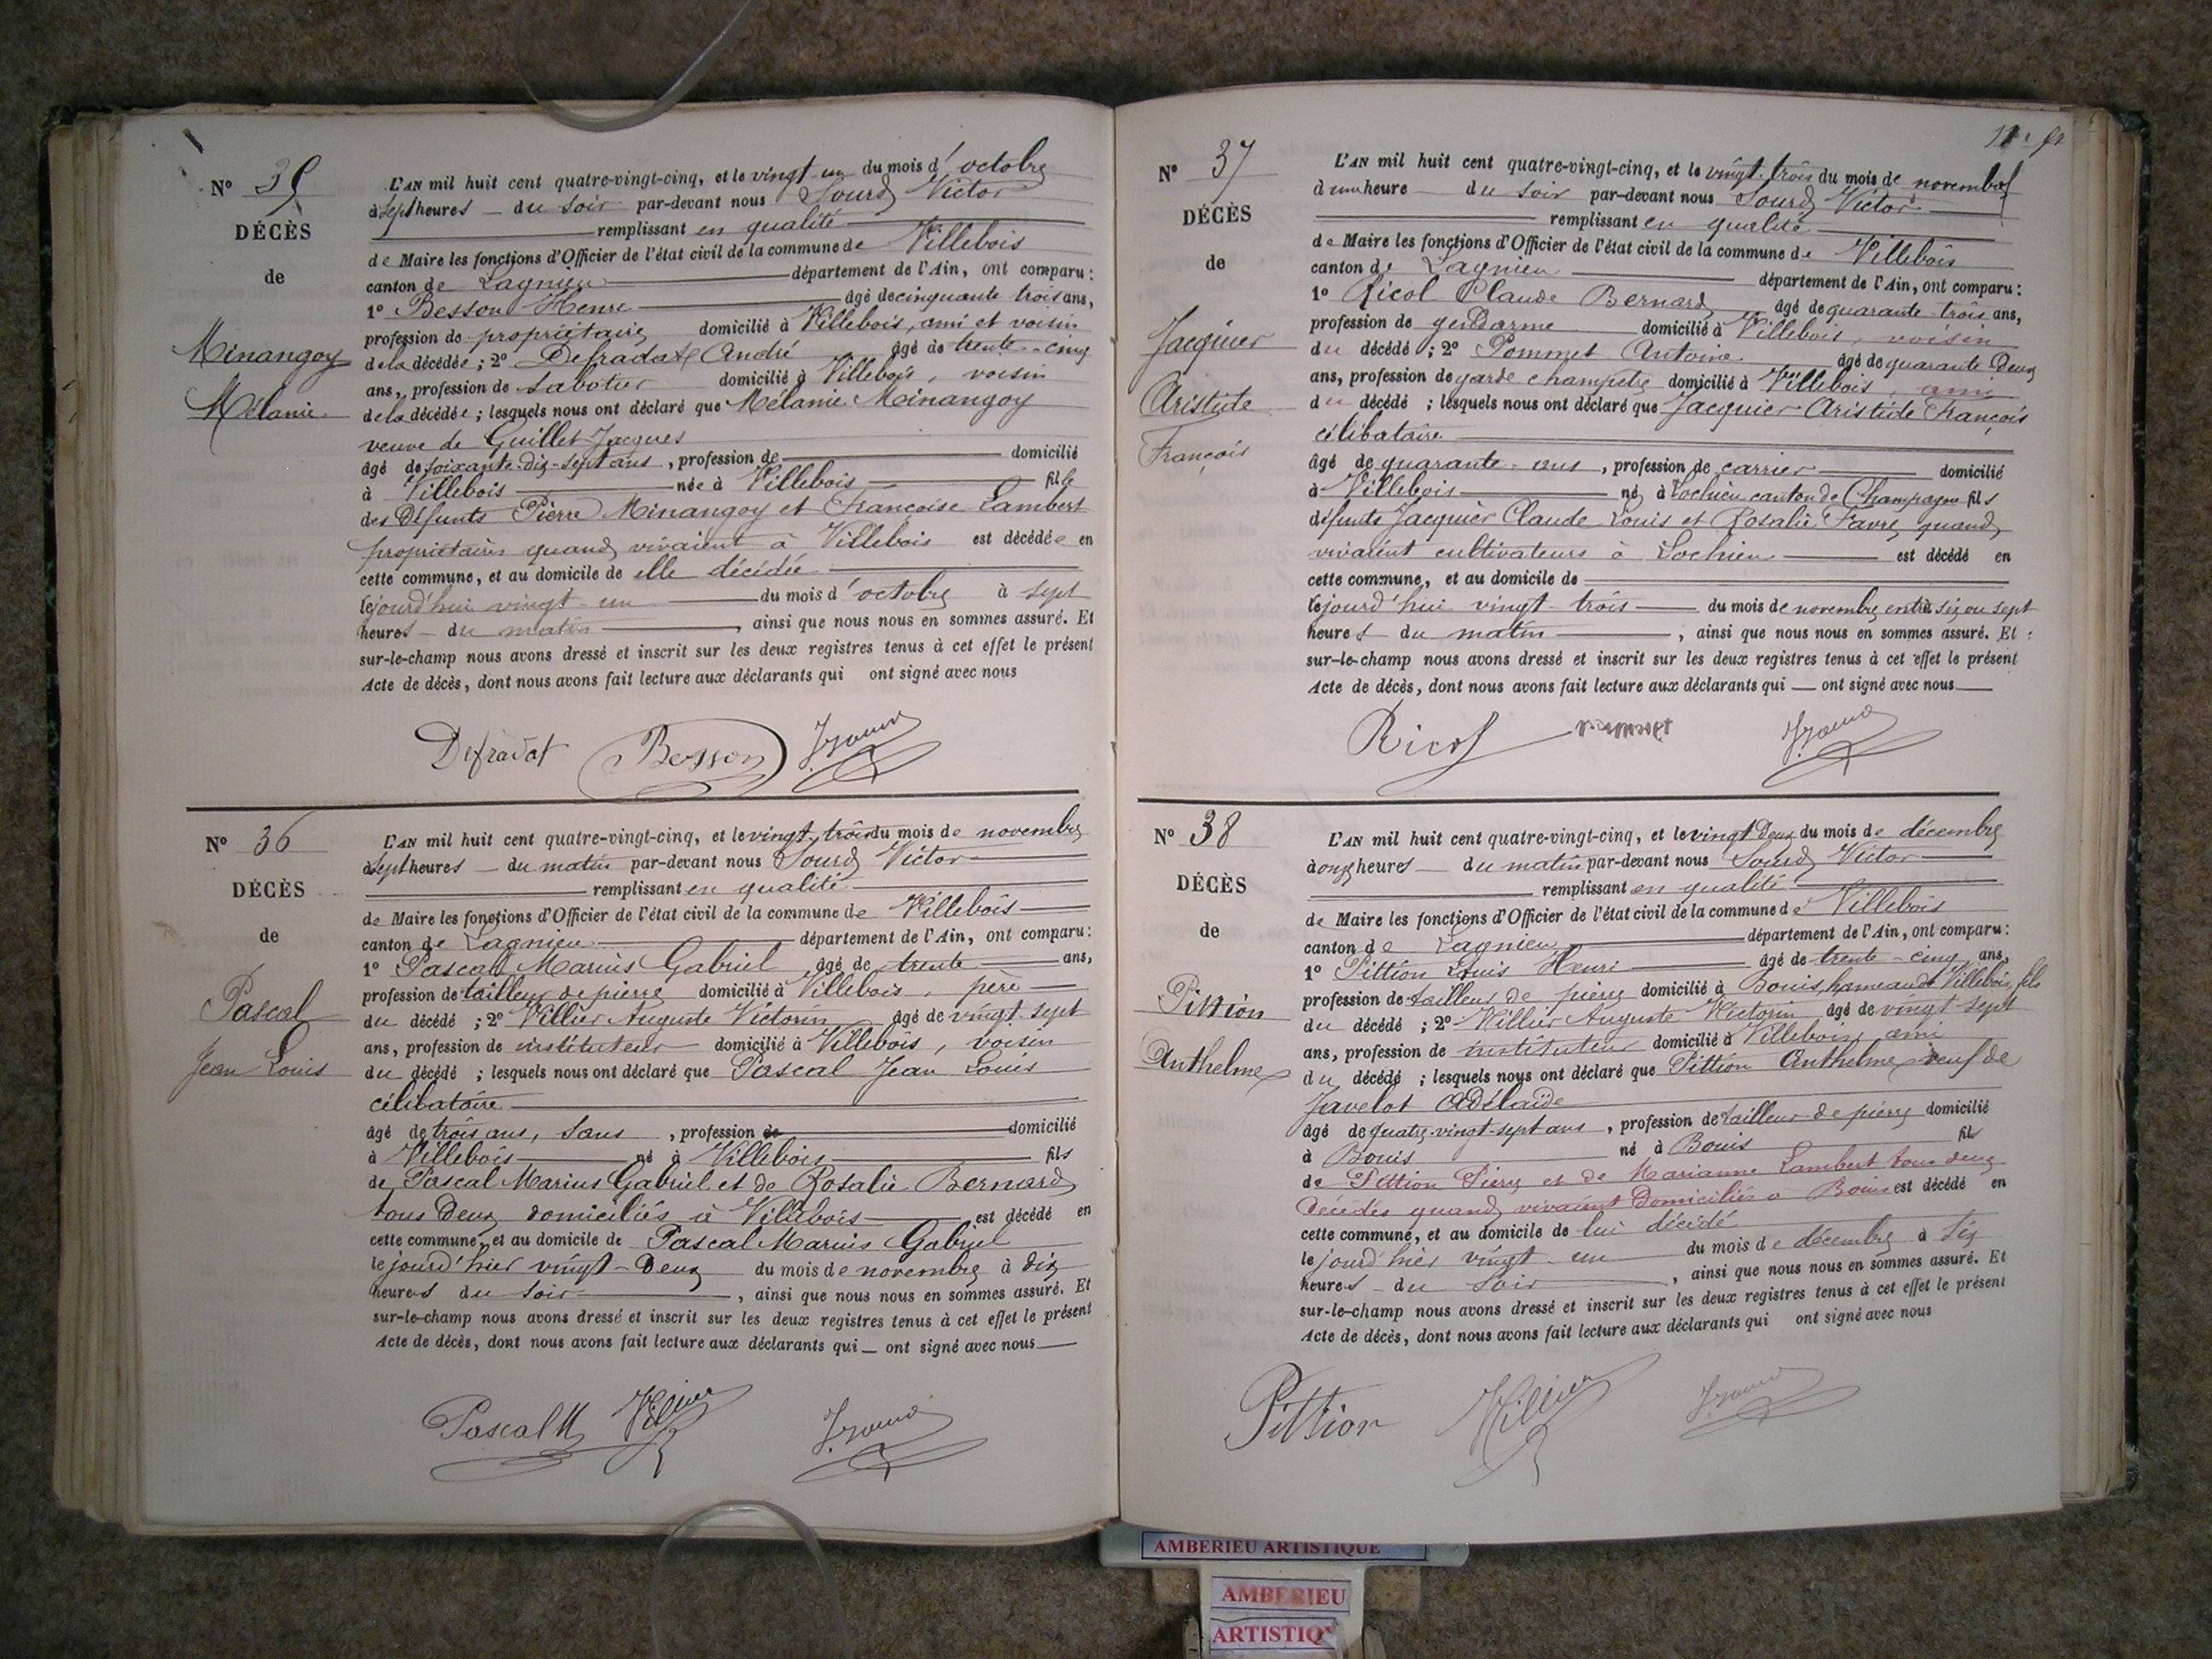 N° 35
DÉCÈS
de
Minangoy
Mélanie
L'AN mil huit cent quatre-vingt-cinq, et le vingt-un du mois d'octobre
à sept heures du soir par-devant nous Sourd Victor
remplissant en qualité
de Maire les fonctions d'Officier de l'état civil de la commune de Villebois
canton de Lagnieu département de l'Ain, ont comparu :
1° Besson Henri âgé de cinquante trois ans,
profession de propriétaire domicilié à Villebois, ami et voisin
de la décédée ; 2° Defradat André âgé de trente-cinq
ans, profession de sabotier domicilié à Villebois, voisin
de la décédée ; lesquels nous ont déclaré que Mélanie Minangoy
veuve de Guillet Jacques
âgé de soixante-dix-sept ans, profession de domicilié
à Villebois née à Villebois fille
des défunts Pierre Minangoy et Françoise Lambert
propriétaires quand vivaient à Villebois est décédée en
cette commune, et au domicile de elle décédée
le jourd'hui vingt-un du mois d'octobre à sept
heures du matin, ainsi que nous nous en sommes assuré. Et
sur-le-champ nous avons dressé et inscrit sur les deux registres tenus à cet effet le présent
Acte de décès, dont nous avons fait lecture aux déclarants qui ont signé avec nous
Defradat Besson
N° 36
DÉCÈS
de
Pascal
Jean Louis
L'AN mil huit cent quatre-vingt-cinq, et le vingt-trois du mois de novembre
à sept heures du matin par-devant nous Sourd Victor
remplissant en qualité
de Maire les fonctions d'Officier de l'état civil de la commune de Villebois
canton de Lagnieu département de l'Ain, ont comparu :
1° Pascal Marius Gabriel âgé de trente ans,
profession de tailleur de pierre domicilié à Villebois, père
du décédé ; 2° Villier Auguste Victorin âgé de vingt sept
ans, profession de instituteur domicilié à Villebois, voisin
du décédé ; lesquels nous ont déclaré que Pascal Jean Louis
célibataire
âgé de trois ans, sans, profession de domicilié
à Villebois né à Villebois fils
de Pascal Marius Gabriel et de Rosalie Bernard
tous deux domiciliés à Villebois est décédé en
cette commune, et au domicile de Pascal Marius Gabriel
le jourd'hier vingt-deux du mois de novembre à dix
heures du soir, ainsi que nous nous en sommes assuré. Et
sur-le-champ nous avons dressé et inscrit sur les deux registres tenus à cet effet le présent
Acte de décès, dont nous avons fait lecture aux déclarants qui ont signé avec nous
Pascal M Villier
N° 37
DÉCÈS
de
Jacquier
Aristide
François
L'AN mil huit cent quatre-vingt-cinq, et le vingt-trois du mois de novembre
à une heure du soir par-devant nous Sourd Victor
remplissant en qualité
de Maire les fonctions d'Officier de l'état civil de la commune de Villebois
canton de Lagnieu département de l'Ain, ont comparu :
1° Ricol Claude Bernard âgé de quarante trois ans,
profession de gendarme domicilié à Villebois, voisin
du décédé ; 2° Pommet Antoine âgé de quarante-deux
ans, profession de garde champetre domicilié à Villebois, ami
du décédé ; lesquels nous ont déclaré que Jacquier Aristide François
célibataire
âgé de quarante ans, profession de carrier domicilié
à Villebois né à Lochieu canton de Champagne fils
défunts Jacquier Claude Louis et Rosalie Favre quand
vivaient cultivateurs à Lochieu est décédé en
cette commune, et au domicile de
le jourd'hui vingt-trois du mois de novembre entre six ou sept
heures du matin, ainsi que nous nous en sommes assuré. Et
sur-le-champ nous avons dressé et inscrit sur les deux registres tenus à cet effet le présent
Acte de décès, dont nous avons fait lecture aux déclarants qui ont signé avec nous
Ricol
N° 38
DÉCÈS
de
Pittion
Anthelme
L'AN mil huit cent quatre-vingt-cinq, et le vingt deux du mois de décembre
à onze heures du matin par-devant nous Sourd Victor
remplissant en qualité
de Maire les fonctions d'Officier de l'état civil de la commune de Villebois
canton de Lagnieu département de l'Ain, ont comparu :
1° Pittion Louis Henri âgé de trente-cinq ans,
profession de tailleur de pierre domicilié à Bouis, hameau de Villebois, fils
du décédé ; 2° Villier Auguste Victorin âgé de vingt sept
ans, profession de instituteur domicilié à Villebois, ami
du décédé ; lesquels nous ont déclaré que Pittion Anthelme veuf de
Javelot Adélaïde
âgé de quatre-vingt-sept ans, profession de tailleur de pierre domicilié
à Bouis né à Bouis fils
de Pittion Pierre et de Marianne Lambert tous deux
décédés quand vivaient domiciliés à Bouis est décédé en
cette commune, et au domicile de lui décédé
le jourd'hier vingt-un du mois de décembre à six
heures du soir, ainsi que nous nous en sommes assuré. Et
sur-le-champ nous avons dressé et inscrit sur les deux registres tenus à cet effet le présent
Acte de décès, dont nous avons fait lecture aux déclarants qui ont signé avec nous
Pittion Villier
AMBERIEU ARTISTIQUE
AMBERIEU
ARTISTIQ